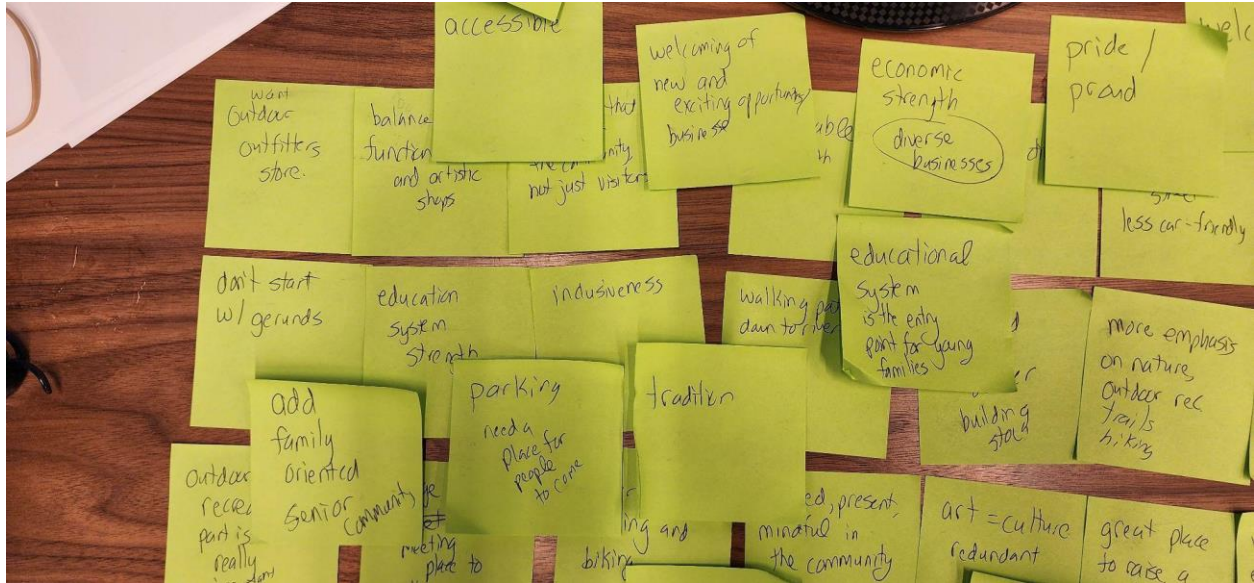 accessible
welcoming of
new and
exciting opportunity/
business
economic
strength
diverse
businesses
pride /
proud
want
Outdoor
outfitters
store.
balance
and artistic
shops
that
not just visitors
less car-friendly
don't start
w/ gerunds
education
system
strength
inclusiveness
walking
down to river
educational
system
is the entry
point for young
families
building
more emphasis
on nature,
outdoor rec
trails
hiking
add
family
oriented
senior community
parking
need a
place for
people
to come
tradition
outdoor
part is
really
meeting
place to
and
biking
present,
mindful in
the community
art = culture
redundant
great place
to raise a